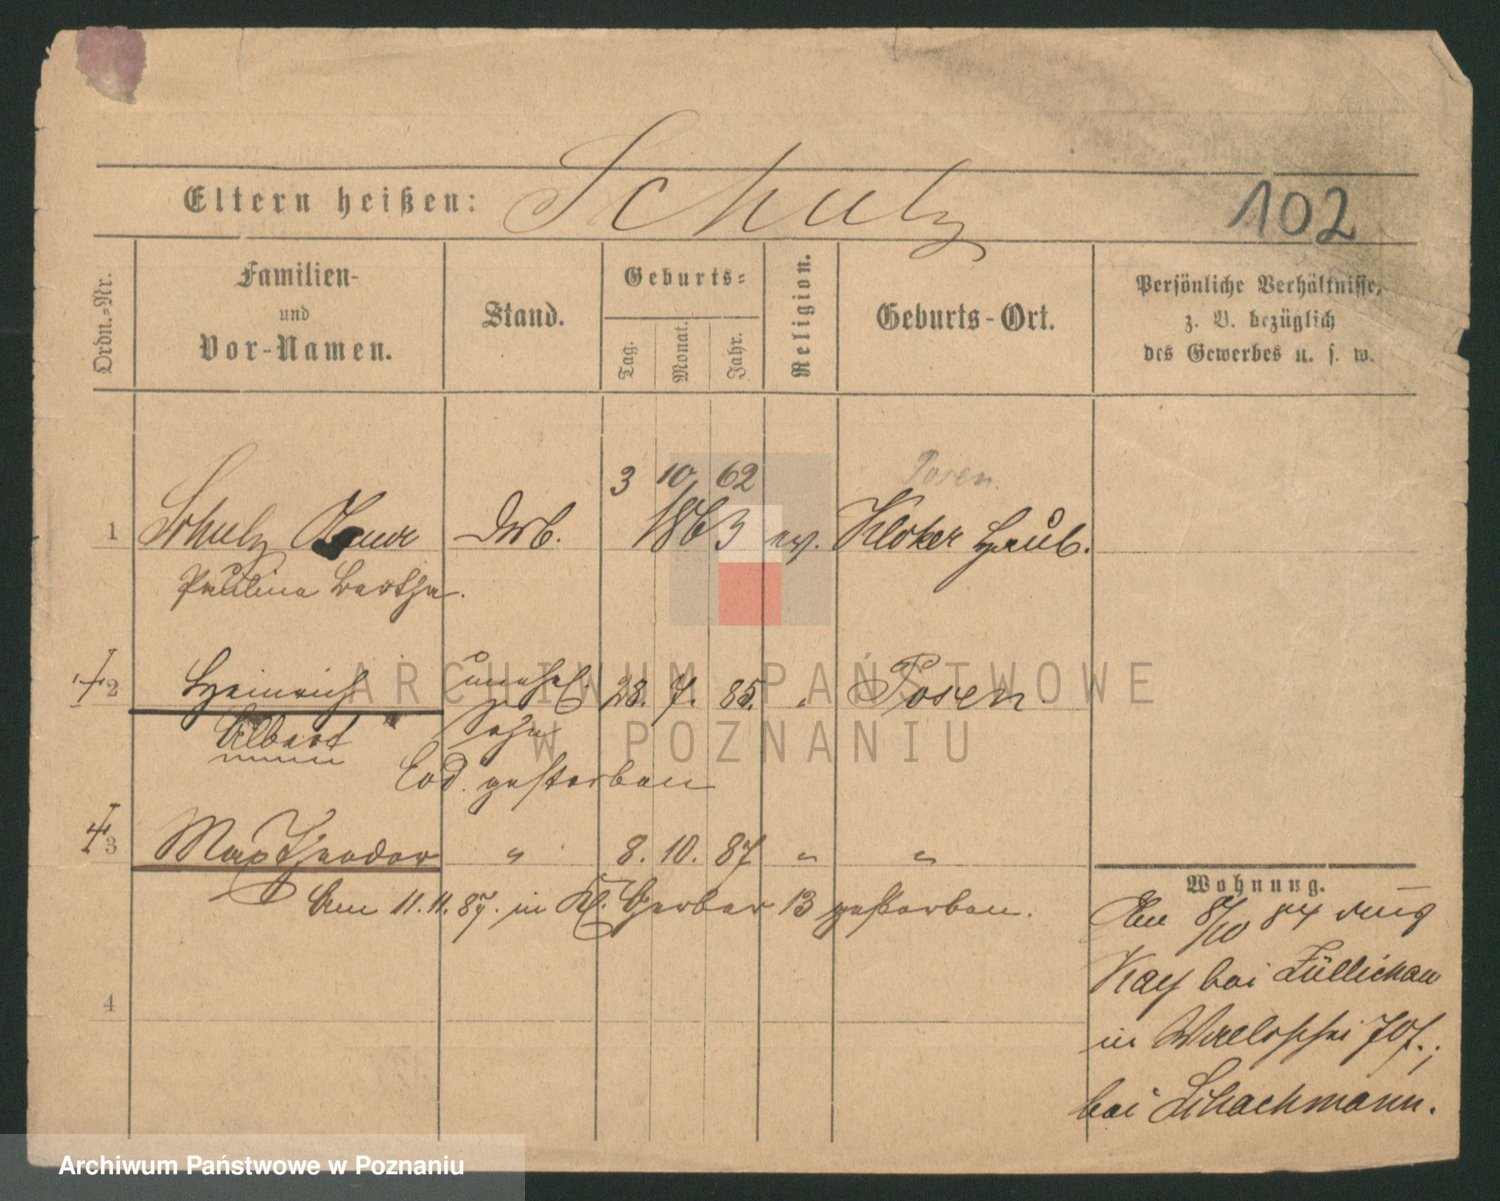 Eltern heißen: Schulz
102
Ordn.-Nr.
Familien-
und
Vor-Namen.
Stand.
Geburts-
Tag.
Monat.
Jahr.
Religion.
Geburts-Ort.
Persönliche Verhältnisse,
z. B. bezüglich
des Gewerbes u. s. w.
3 10 62
Posen
1 Schulz 1863 ev.
Paulina Bertha.
2 Heinrich unehel. 28. 7. 85. Posen
Albert Sohn
Tod. gestorben
3 Max Theodor " 8. 10. 87 " "
Am 11. 11. 87. in Kl. Gerber 13 gestorben.
4
Wohnung.
Am 8/10 84 aus
Kay bei Züllichau
in Wallischei 70/.;
bei Schachmann.
ARCHIWUM PAŃSTWOWE
W POZNANIU
Archiwum Państwowe w Poznaniu